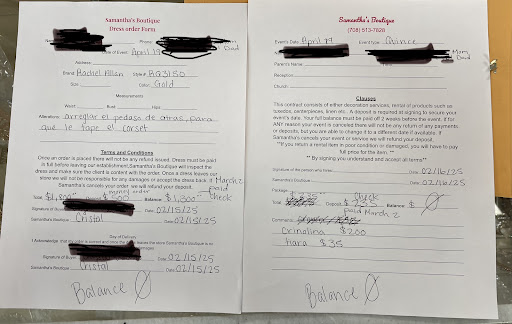 Samantha's Boutique
Dress order Form
Phone:
Mom
Dad
Date of Event: April 19
Address:
Brand: Rachel Allan Style #: RQ3150
Size: Color: Gold
Measurements
Waist: Bust: Hips:
Alterations: arreglar el pedaso de atras, para
que le tape el corset
Terms and Conditions
Once an order is placed there will not be any refund issued. Dress must be paid
in full before leaving our establishment. Samantha's Boutique will inspect the
dress and make sure the client is content with the order. Once a dress leaves our
store we will not be responsible for any damages or accept the dress back. If
Samantha's cancels your order we will refund your deposit.
March 2
paid
check
money order
Total: $1,800 $500 Balance: $1,300
Signature of Buyer: Date: 02/15/25
Samantha's Boutique: Cristal Date: 02/15/25
Day of Delivery
I Acknowledge that
Signature of Buyer: Date: 02/15/25
Samantha's Boutique: Cristal Date: 02/15/25
Balance 0
Samantha's Boutique
(708) 513-7828
Event's Date: April 19 Event type: Quince
Mom
Dad
Parent's Name:
Reception:
Church:
Clauses
This contract consists of either decoration services, rental of products such as
tuxedos, centerpieces, linen etc. A deposit is required at signing to secure your
event's date. Your full balance must be paid 2 weeks before the event. If for
ANY reason your event is canceled there will not be any return of any payments
or deposits, but you are able to change it to a different date if available. If
Samantha's cancels your event or service we will refund your deposit.
**If you return a rental item in poor condition or damaged, you will have to pay
full price for the item. **
** By signing you understand and accept all terms**
Signature of the person who hires: Date: 02/16/25
Samantha's Boutique: Date: 02/16/25
Package:
$235 check
Total: Deposit: $235 Balance: $ 0
paid March 2
Comments:
Crinolina $200
tiara $35
Balance 0